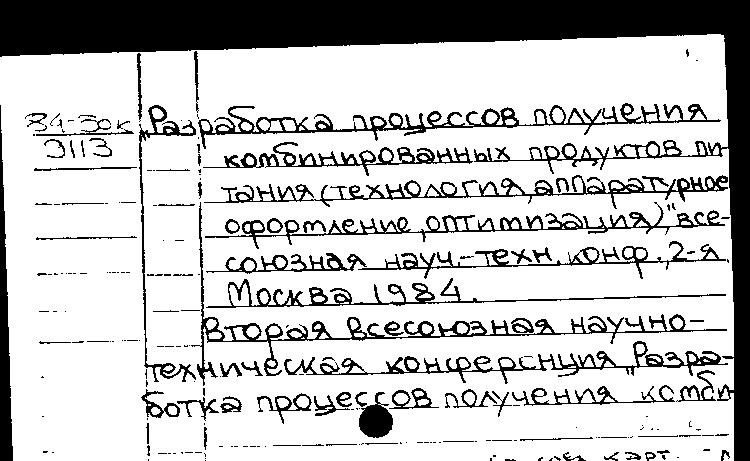 84-30к „Разработка процессов получения
Э113
комбинированных продуктов пи-
тания (технология, аппаратурное
оформление, оптимизация)", все-
союзная науч.-техн. конф., 2-я.
Москва 1984.
Вторая всесоюзная научно-
техническая конференция „Разра-
ботка процессов получения комби
карт.